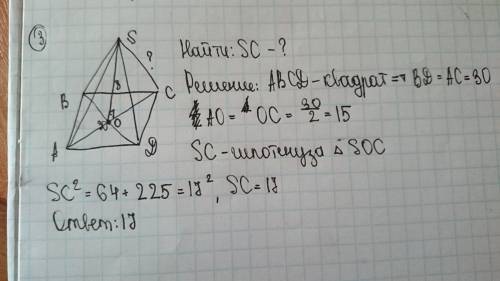 3
S
?
8
B
C
30
O
A
D
Найти: SC - ?
Решение: ABCD - квадрат ⇒ BD = AC = 30
AO = OC = 30/2 = 15
SC - гипотенуза △ SOC
SC² = 64 + 225 = 17², SC = 17
Ответ: 17